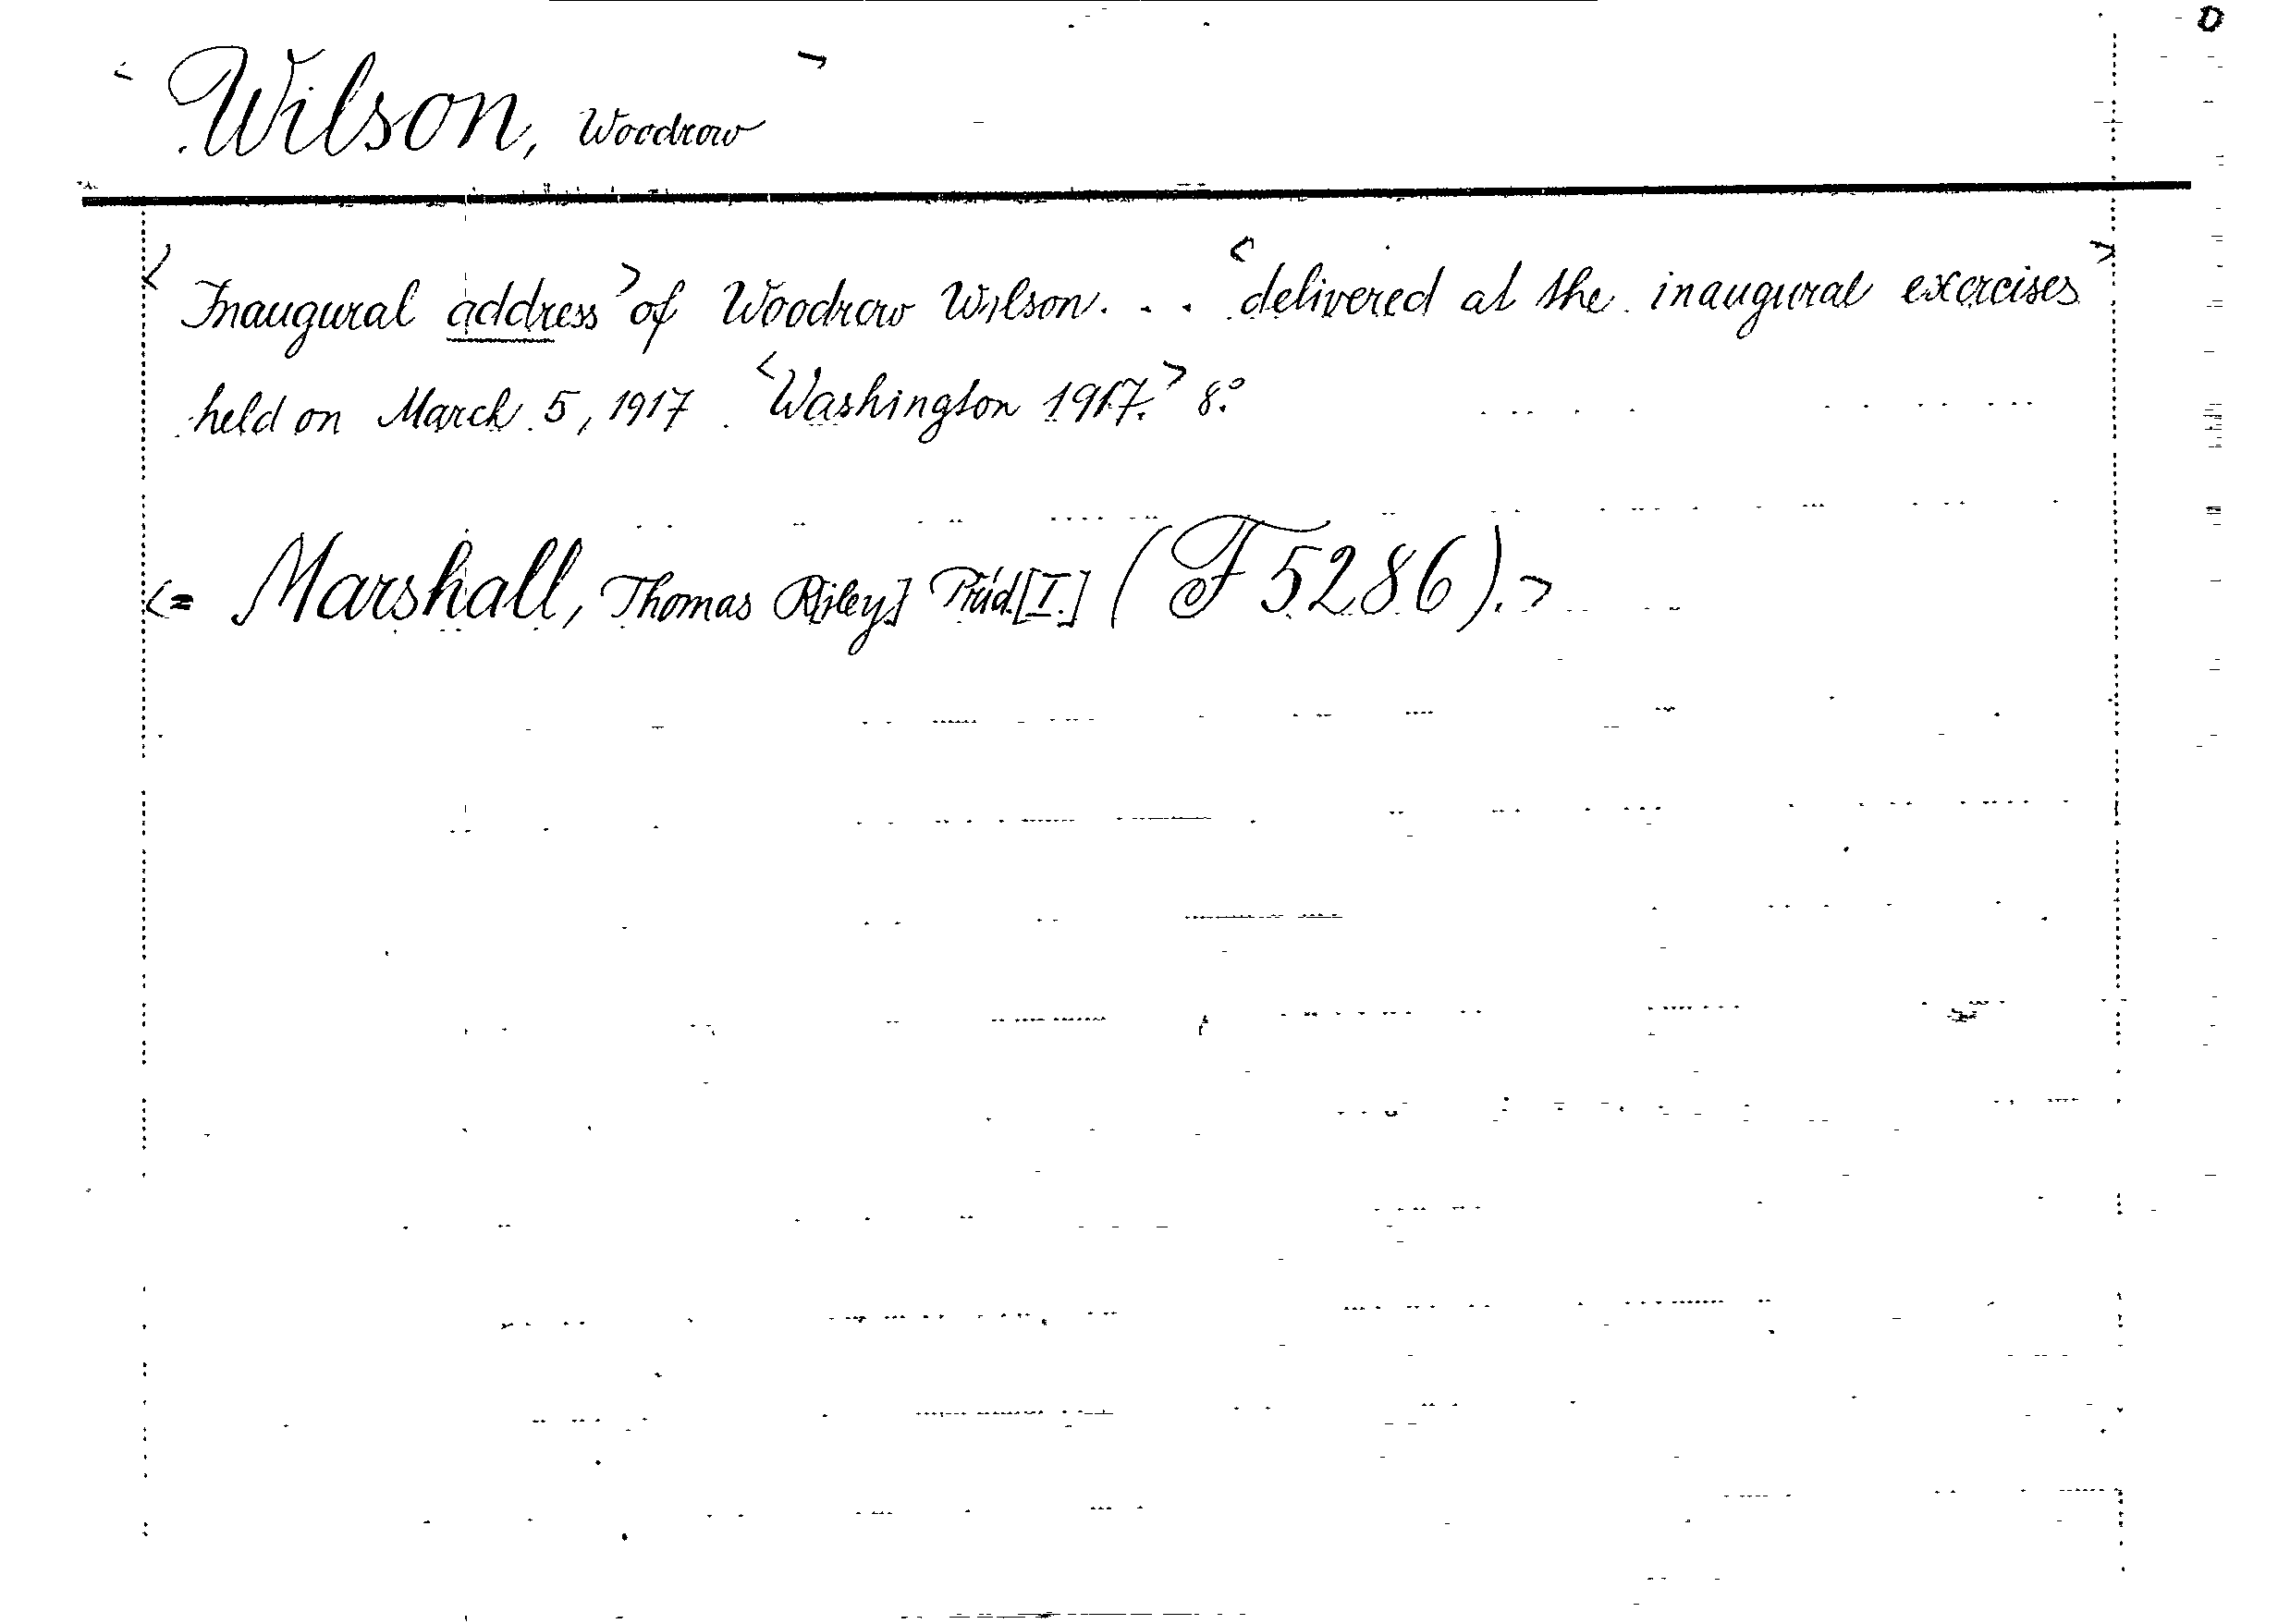 <Wilson, Woodrow>
<Inaugural address> of Woodrow Wilson... <delivered at the inaugural exercises>
held on March 5, 1917. <Washington 1917.> 8.°
<= Marshall, Thomas R[iley] Präd.[I.] (F 5286).>